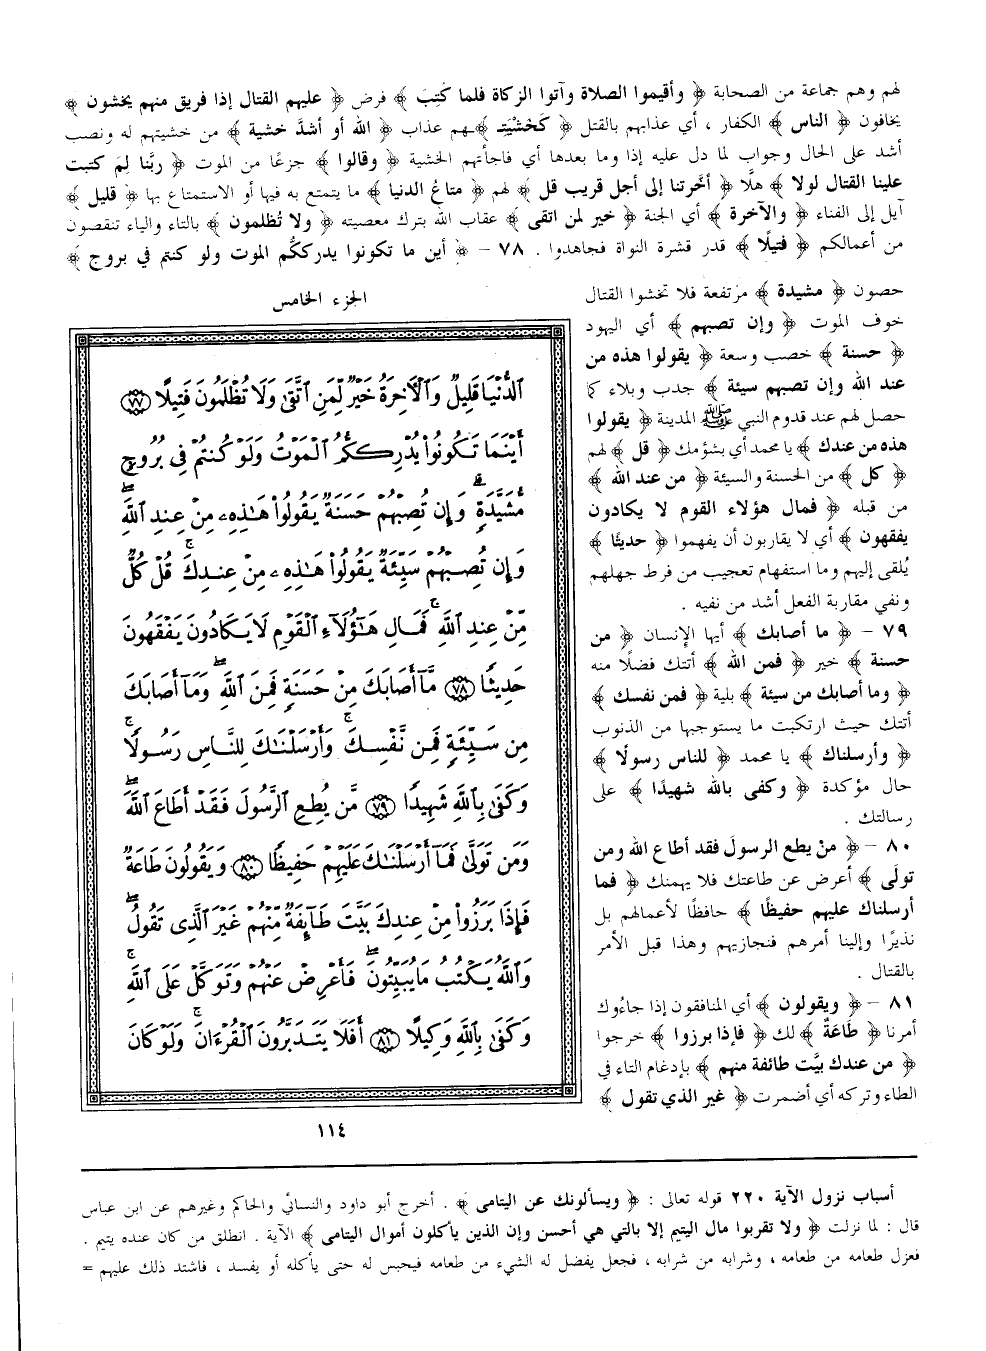 لهم وهم جماعة من الصحابة ﴿ وأقيموا الصلاة وآتوا الزكاة فلما كُتِبَ ﴾ فرض ﴿ عليهم القتال إذا فريق منهم يخشون ﴾
يخافون ﴿ الناس ﴾ الكفار ، أي عذابهم بالقتل ﴿ كَخَشْيَتِـ ﴾ـهم عذاب ﴿ الله أو أشدَّ خشية ﴾ من خشيتهم له ونصب
أشد على الحال وجواب لما دل عليه إذا وما بعدها أي فاجأتهم الخشية ﴿ وقالوا ﴾ جزعًا من الموت ﴿ ربَّنا لِمَ كتبت
علينا القتال لولا ﴾ هلَّا ﴿ أخَّرتنا إلى أجل قريب قل ﴾ لهم ﴿ متاعُ الدنيا ﴾ ما يتمتع به فيها أو الاستمتاع بها ﴿ قليل ﴾
آيل إلى الفناء ﴿ والآخرة ﴾ أي الجنة ﴿ خير لمن اتقى ﴾ عقاب الله بترك معصيته ﴿ ولا تُظلمون ﴾ بالتاء والياء تنقصون
من أعمالكم ﴿ فتيلًا ﴾ قدر قشرة النواة فجاهدوا . ٧٨ – ﴿ أين ما تكونوا يدرككُّم الموت ولو كنتم في بروج ﴾
حصون ﴿ مشيدة ﴾ مرتفعة فلا تخشوا القتال
خوف الموت ﴿ وإن تصبهم ﴾ أي اليهود
﴿ حسنة ﴾ خصب وسعة ﴿ يقولوا هذه من
عند الله وإن تصبهم سيئة ﴾ جدب وبلاء كما
حصل لهم عند قدوم النبي ﷺ المدينة ﴿ يقولوا
هذه من عندك ﴾ يا محمد أي بشؤمك ﴿ قل ﴾ لهم
﴿ كل ﴾ من الحسنة والسيئة ﴿ من عند الله ﴾
من قبله ﴿ فمال هؤلاء القوم لا يكادون
يفقهون ﴾ أي لا يقاربون أن يفهموا ﴿ حديثًا ﴾
يُلقى إليهم وما استفهام تعجيب من فرط جهلهم
ونفي مقاربة الفعل أشد من نفيه .
٧٩ – ﴿ ما أصابك ﴾ أيها الإنسان ﴿ من
حسنة ﴾ خير ﴿ فمن الله ﴾ أتتك فضلًا منه
﴿ وما أصابك من سيئة ﴾ بلية ﴿ فمن نفسك ﴾
أتتك حيث ارتكبت ما يستوجبها من الذنوب
﴿ وأرسلناك ﴾ يا محمد ﴿ للناس رسولًا ﴾
حال مؤكدة ﴿ وكفى بالله شهيدًا ﴾ على
رسالتك .
٨٠ – ﴿ منْ يطع الرسولَ فقد أطاع الله ومن
تولَى ﴾ أعرض عن طاعتك فلا يهمنك ﴿ فما
أرسلناك عليهم حفيظًا ﴾ حافظًا لأعمالهم بل
نذيرًا وإلينا أمرهم فنجازيهم وهذا قبل الأمر
بالقتال .
٨١ – ﴿ ويقولون ﴾ أي المنافقون إذا جاءُوك
أمرنا ﴿ طَاعَةٌ ﴾ لك ﴿ فإذا برزوا ﴾ خرجوا
﴿ من عندك بيَّت طائفة منهم ﴾ بإدغام التاء في
الطاء وتركه أي أضمرت ﴿ غير الذي تقول ﴾
الجزء الخامس
ٱلدُّنْيَا قَلِيلٌ وَٱلْأَخِرَةُ خَيْرٌ لِّمَنِ ٱتَّقَىٰ وَلَا تُظْلَمُونَ فَتِيلًا ٧٧
أَيْنَمَا تَكُونُوا۟ يُدْرِككُّمُ ٱلْمَوْتُ وَلَوْ كُنتُمْ فِى بُرُوجٍ
مُّشَيَّدَةٍ ۗ وَإِن تُصِبْهُمْ حَسَنَةٌ يَقُولُوا۟ هَـٰذِهِۦ مِنْ عِندِ ٱللَّهِ ۖ
وَإِن تُصِبْهُمْ سَيِّئَةٌ يَقُولُوا۟ هَـٰذِهِۦ مِنْ عِندِكَ ۚ قُلْ كُلٌّ
مِّنْ عِندِ ٱللَّهِ ۖ فَمَالِ هَـٰٓؤُلَآءِ ٱلْقَوْمِ لَا يَكَادُونَ يَفْقَهُونَ
حَدِيثًا ٧٨ مَّآ أَصَابَكَ مِنْ حَسَنَةٍ فَمِنَ ٱللَّهِ ۖ وَمَآ أَصَابَكَ
مِن سَيِّئَةٍ فَمِن نَّفْسِكَ ۚ وَأَرْسَلْنَـٰكَ لِلنَّاسِ رَسُولًا ۚ
وَكَفَىٰ بِٱللَّهِ شَهِيدًا ٧٩ مَّن يُطِعِ ٱلرَّسُولَ فَقَدْ أَطَاعَ ٱللَّهَ ۖ
وَمَن تَوَلَّىٰ فَمَآ أَرْسَلْنَـٰكَ عَلَيْهِمْ حَفِيظًا ٨٠ وَيَقُولُونَ طَاعَةٌ
فَإِذَا بَرَزُوا۟ مِنْ عِندِكَ بَيَّتَ طَآئِفَةٌ مِّنْهُمْ غَيْرَ ٱلَّذِى تَقُولُ ۖ
وَٱللَّهُ يَكْتُبُ مَا يُبَيِّتُونَ ۖ فَأَعْرِضْ عَنْهُمْ وَتَوَكَّلْ عَلَى ٱللَّهِ ۚ
وَكَفَىٰ بِٱللَّهِ وَكِيلًا ٨١ أَفَلَا يَتَدَبَّرُونَ ٱلْقُرْءَانَ ۚ وَلَوْ كَانَ
١١٤
أسباب نزول الآية ٢٢٠ قوله تعالى : ﴿ ويسألونك عن اليتامى ﴾ . أخرج أبو داود والنسائي والحاكم وغيرهم عن ابن عباس
قال : لما نزلت ﴿ ولا تقربوا مال اليتيم إلا بالتي هي أحسن وإن الذين يأكلون أموال اليتامى ﴾ الآية . انطلق من كان عنده يتيم .
فعزل طعامه من طعامه ، وشرابه من شرابه ، فجعل يفضل له الشيء من طعامه فيحبس له حتى يأكله أو يفسد ، فاشتد ذلك عليهم =